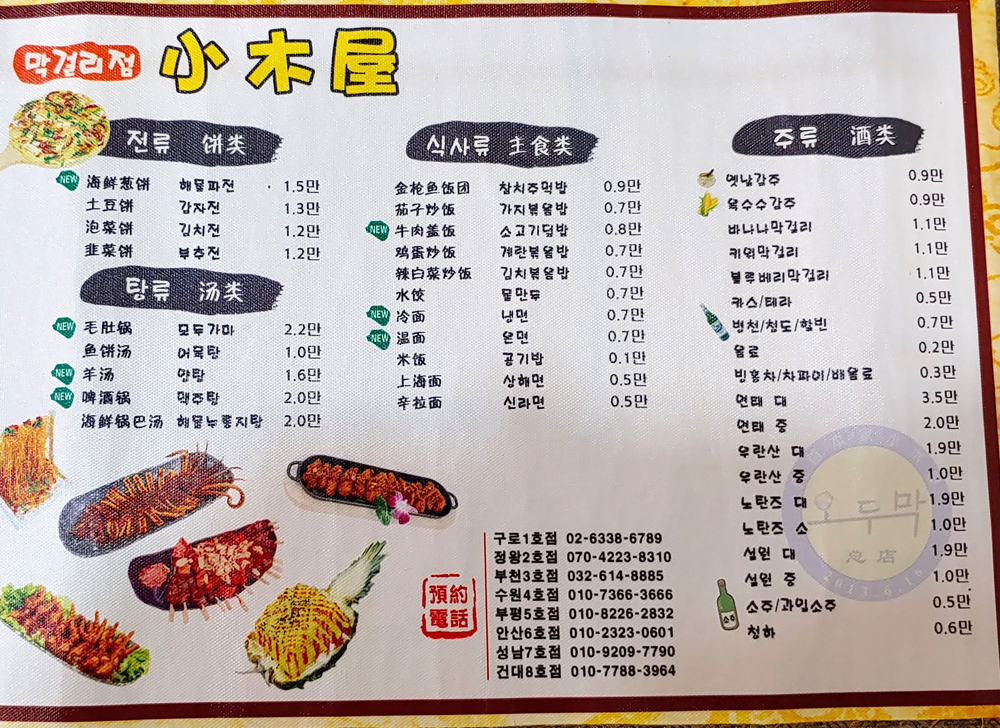 막걸리점 小木屋
전류 饼类
NEW 海鲜葱饼 해물파전 1.5만
土豆饼 감자전 1.3만
泡菜饼 김치전 1.2만
韭菜饼 부추전 1.2만
탕류 汤类
NEW 毛肚锅 모두가마 2.2만
鱼饼汤 어묵탕 1.0만
NEW 羊汤 양탕 1.6만
NEW 啤酒锅 맥주탕 2.0만
海鲜锅巴汤 해물누룽지탕 2.0만
식사류 主食类
金枪鱼饭团 참치주먹밥 0.9만
茄子炒饭 가지볶음밥 0.7만
NEW 牛肉盖饭 소고기덮밥 0.8만
鸡蛋炒饭 계란볶음밥 0.7만
辣白菜炒饭 김치볶음밥 0.7만
水饺 물만두 0.7만
NEW 冷面 냉면 0.7만
NEW 温面 온면 0.7만
米饭 공기밥 0.1만
上海面 상해면 0.5만
辛拉面 신라면 0.5만
주류 酒类
옛날감주 0.9만
옥수수감주 0.9만
바나나막걸리 1.1만
키위막걸리 1.1만
블루베리막걸리 1.1만
카스/테라 0.5만
병천/청도/할빈 0.7만
음료 0.2만
빙홍차/차파이/배음료 0.3만
연태 대 3.5만
연태 중 2.0만
우란산 대 1.9만
우란산 중 1.0만
노탄즈 대 1.9만
노탄즈 소 1.0만
설원 대 1.9만
설원 중 1.0만
소주/과일소주 0.5만
청하 0.6만
오두막
总店
2013.6.16
소주
預約
電話
구로1호점 02-6338-6789
정왕2호점 070-4223-8310
부천3호점 032-614-8885
수원4호점 010-7366-3666
부평5호점 010-8226-2832
안산6호점 010-2323-0601
성남7호점 010-9209-7790
건대8호점 010-7788-3964